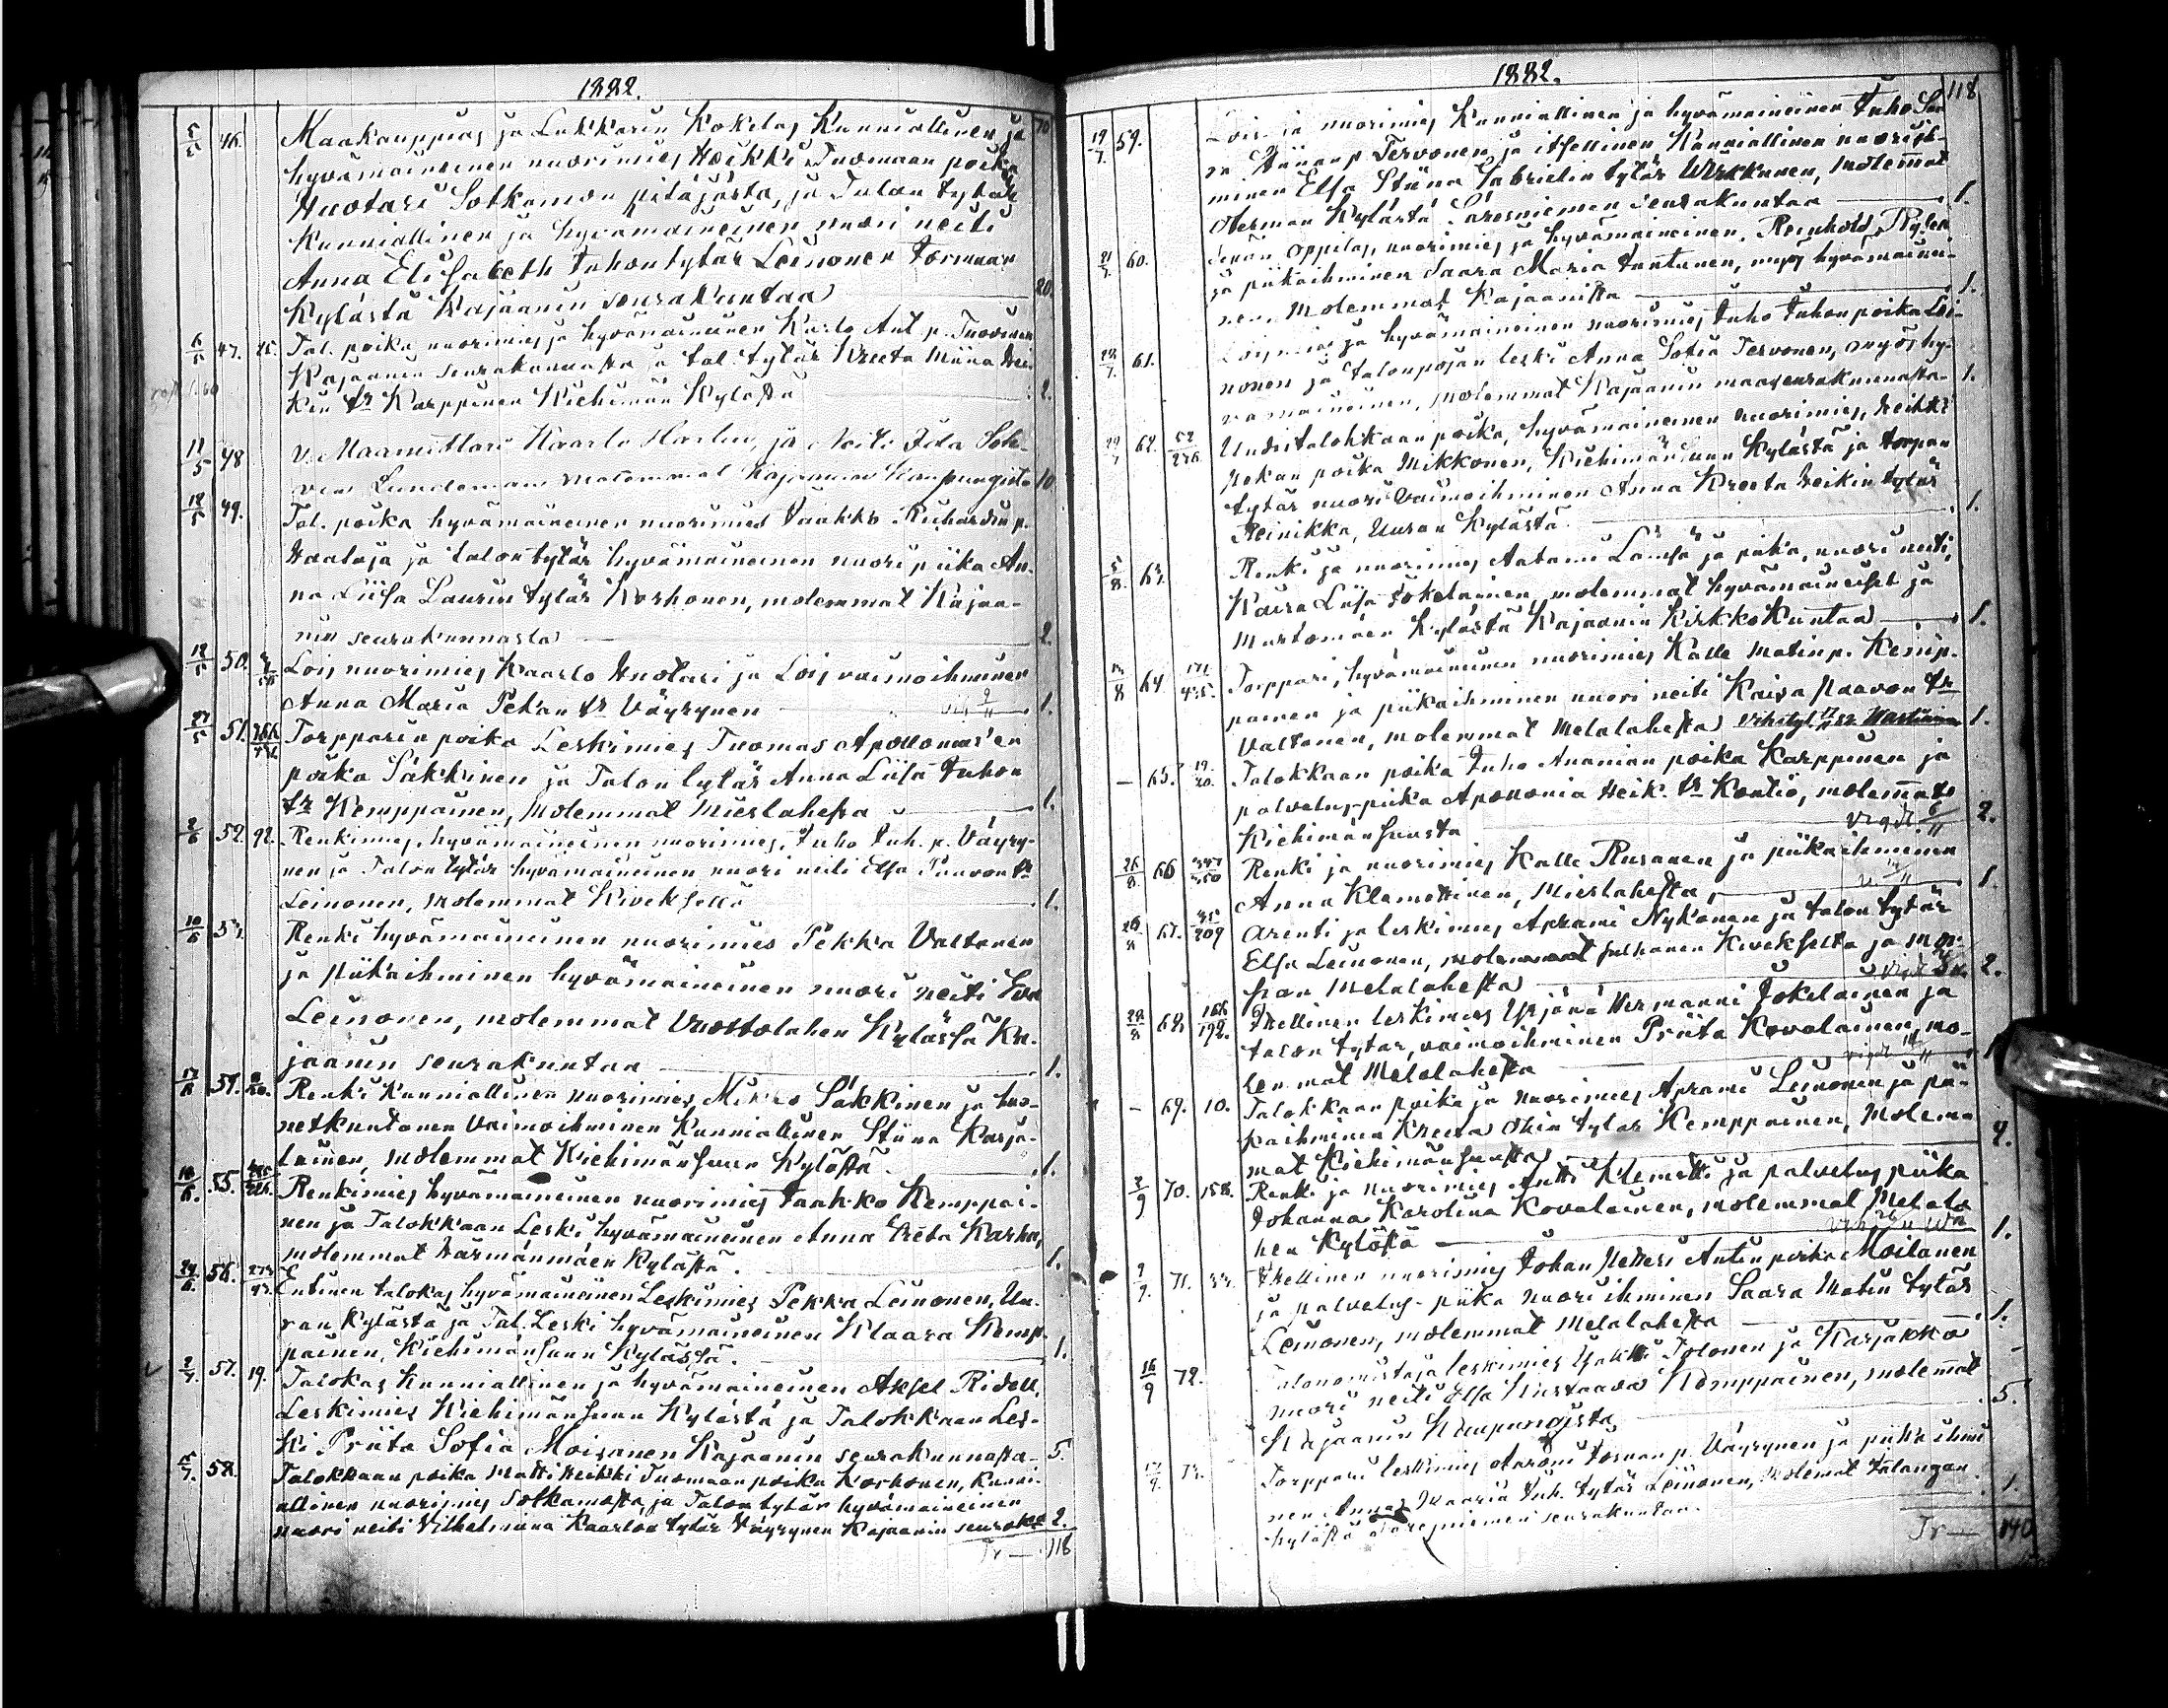 1882.
5/5 46. Maakauppias ja Lukkarin Kokelas Kunniallinen ja 70
hyvämaineinen nuorimies Heikki Tuomaan poika
Huotari Sotkamon pitäjästä, ja Talon tytär
Kunniallinen ja hyvämaineinen nuori neiti
Anna Elisabeth Juhon tytär Leinonen Jormuan
Kylästä Kajaanin seurakuntaa 20.
6/5 47. 25. Tal. poika nuorimies ja hyvämaineinen Karlo Ant. p. Tuovinen
Kajaanin seurakunnasta ja tal. tytär Kreeta Miina Hei-
kin tr Karppinen Kiehimän Kylästä 2.
11/5 48 v. Maamittari Kaarlo Harlin, ja Neiti Ida
Lundeman molemmat Kajaanin Kaupungista 10
18/5 49. Tal. poika hyvämaineinen nuorimies Jaakko Richardin p.
Haataja ja talon tytär hyvämaineinen nuori piika An-
na Liisa Laurin tytär Korhonen, molemmat Kajaa-
nin seurakunnasta 2.
18/5 50. Lois nuorimies Kaarlo Huotari ja Lois vaimoihminen
Anna Maria Pekan tr Väyrynen 1.
27/5 51. Torpparin poika Leskimies Tuomas Apollonius'en
poika Säkkinen ja Talon tytär Anna Liisa Juhon
tr Kemppainen, Molemmat Mieslahesta 1.
2/6 52. 92. Renkimies, hyvämaineinen nuorimies, Juho Juh. p. Väyry-
nen ja Talon tytär hyvämaineinen nuori neiti Elsa Paavon tr
Leinonen, molemmat Kiveksellä 1.
10/6 53. Renki hyvämaineinen nuorimies Pekka Valtanen
ja piikaihminen hyvämaineinen nuori neiti Eva
Leinonen, molemmat Vuottolahen Kylässä Ka-
jaanin seurakuntaa 1.
17/6 54. Renki Kunniallinen nuorimies Mikko Säkkinen ja huo-
netkuntanen Vaimoihminen Kunniallinen Stiina Karja-
lainen, molemmat Kiehimänsuun Kylästä. 1.
18/6. 55. Renkimies hyvämaineinen nuorimies Jaakko Kemppai-
nen ja Talokkaan Leski hyvämaineinen Anna Greta Karhu,
molemmat Härmänmäen Kylästä. 1.
24/6. 56. Entinen talokas hyvämaineinen Leskimies Pekka Leinonen, Uu-
ran Kylästä ja Tal. Leski hyvämaineinen Klaara Kemp-
painen, Kiehimänsuun Kylässä. 1.
2/7. 57. 19. Talokas Kunniallinen ja hyvämaineinen Aksel Ridell,
Leskimies Kiehimänsuun Kylästä ja Talokkaan Les-
ki Priita Sofia Moisanen Kajaanin seurakunnasta 5.
5/7. 58. Talokkaan poika Matti Heikki Tuomaan poika Korhonen, Kunni-
allinen nuorimies Sotkamosta, ja Talon tytär hyvämaineinen
nuori neiti Vilhelmiina Kaarlon tytär Väyrynen Kajaanin seurak. 2.
Tr — 118
1882.
118
19/7. 59. Lois ja nuorimies Kunniallinen ja hyvämaineinen Juho
Tervonen ja itsellinen Kunniallinen nuori ih-
minen Elsa Stiina Gabrielin tytär Wirkkunen, molemat
Oterman Kylästä Säresniemen seurakuntaa 1.
21/7. 60. oppilas, nuorimies ja hyvämaineinen, Reinhold
ja piikaihminen Saara Maria Juntunen, myös hyvämainei-
nen, Molemmat Kajaanista 1.
61. ja hyvämaineinen nuorimies Juho Juhon poika Lei-
nonen ja talonpojan leski Anna Sofia Tervonen, myös hy-
vämaineinen, molemmat Kajaanin maaseurakunnasta 1.
62. Uudistalokkaan poika, hyvämaineinen nuorimies, Heikki
Pekan poika Mikkonen, Kiehimänsuun Kylästä ja torpan
tytär nuori Vaimoihminen Anna Kreeta Heikin tytär
Heinikka, Uuran Kylästä. 1.
5/8. 63. Renki ja nuorimies Aatami Lämsä ja piika, nuori neiti,
Kaisa Liisa Jokelainen, molemmat hyvämaineiset ja
Murtomäen Kylästä Kajaanin Kirkkokuntaa 1.
64. Torppari, hyvämaineinen nuorimies Kalle Matin p. Kemp-
painen ja piikaihminen nuori neiti Kaisa Paavon tr
Valtanen, molemmat Melalahesta 1.
— 65. 19/20. Talokkaan poika Juho Ananian poika Karppinen ja
palvelus-piika Apollonia Heik. tr Kontio, molemat
Kiehimänsuusta 2.
26/8. 66 Renki ja nuorimies Kalle Rusanen ja piikaihminen
Anna Klemettinen, Mieslahesta, 1.
26/8 67. Arenti ja leskimies Aprami Nykänen ja talon tytär
Elsa Leinonen, molemmat sulhanen Kivekseltä ja mor-
sian Melalahesta 2.
68. Itsellinen leskimies Yrjänä Hermanni Jokelainen ja
talon tytar, vaimoihminen Priita Kovalainen, mo-
lemmat Melalahesta
— 69. 10. Talokkaan poika ja nuorimies Aprami Leinonen ja pii-
kaihminen Kreeta Ohin tytar Kemppainen, Molem-
mat Kiehimänsuusta
3/9 70. 158. Renki ja nuorimies Antti Klemetti ja palvelus piika
Johanna Karolina Kovalainen, molemmat Melala-
hen Kylästä 1.
71. 33. Itsellinen nuorimies Johan Petteri Antin poika Moilanen
ja palvelus-piika nuori ihminen Saara Matin tytär
Leinonen, molemmat Melalahesta 1.
16/9 72. Talonomistaja leskimies Tolonen ja Karjakko
nuori neiti Elsa Kustaava Kemppainen, molemat
Kajaanin Kaupungista 5.
73. Torppari leskimies Aaroni p. Väyrynen ja piika ihmi-
nen Anna Maaria Juh. tytär Leinonen, Molemat Jalangan 1.
kylästä Säresniemen seurakuntaa.
Tr — 140